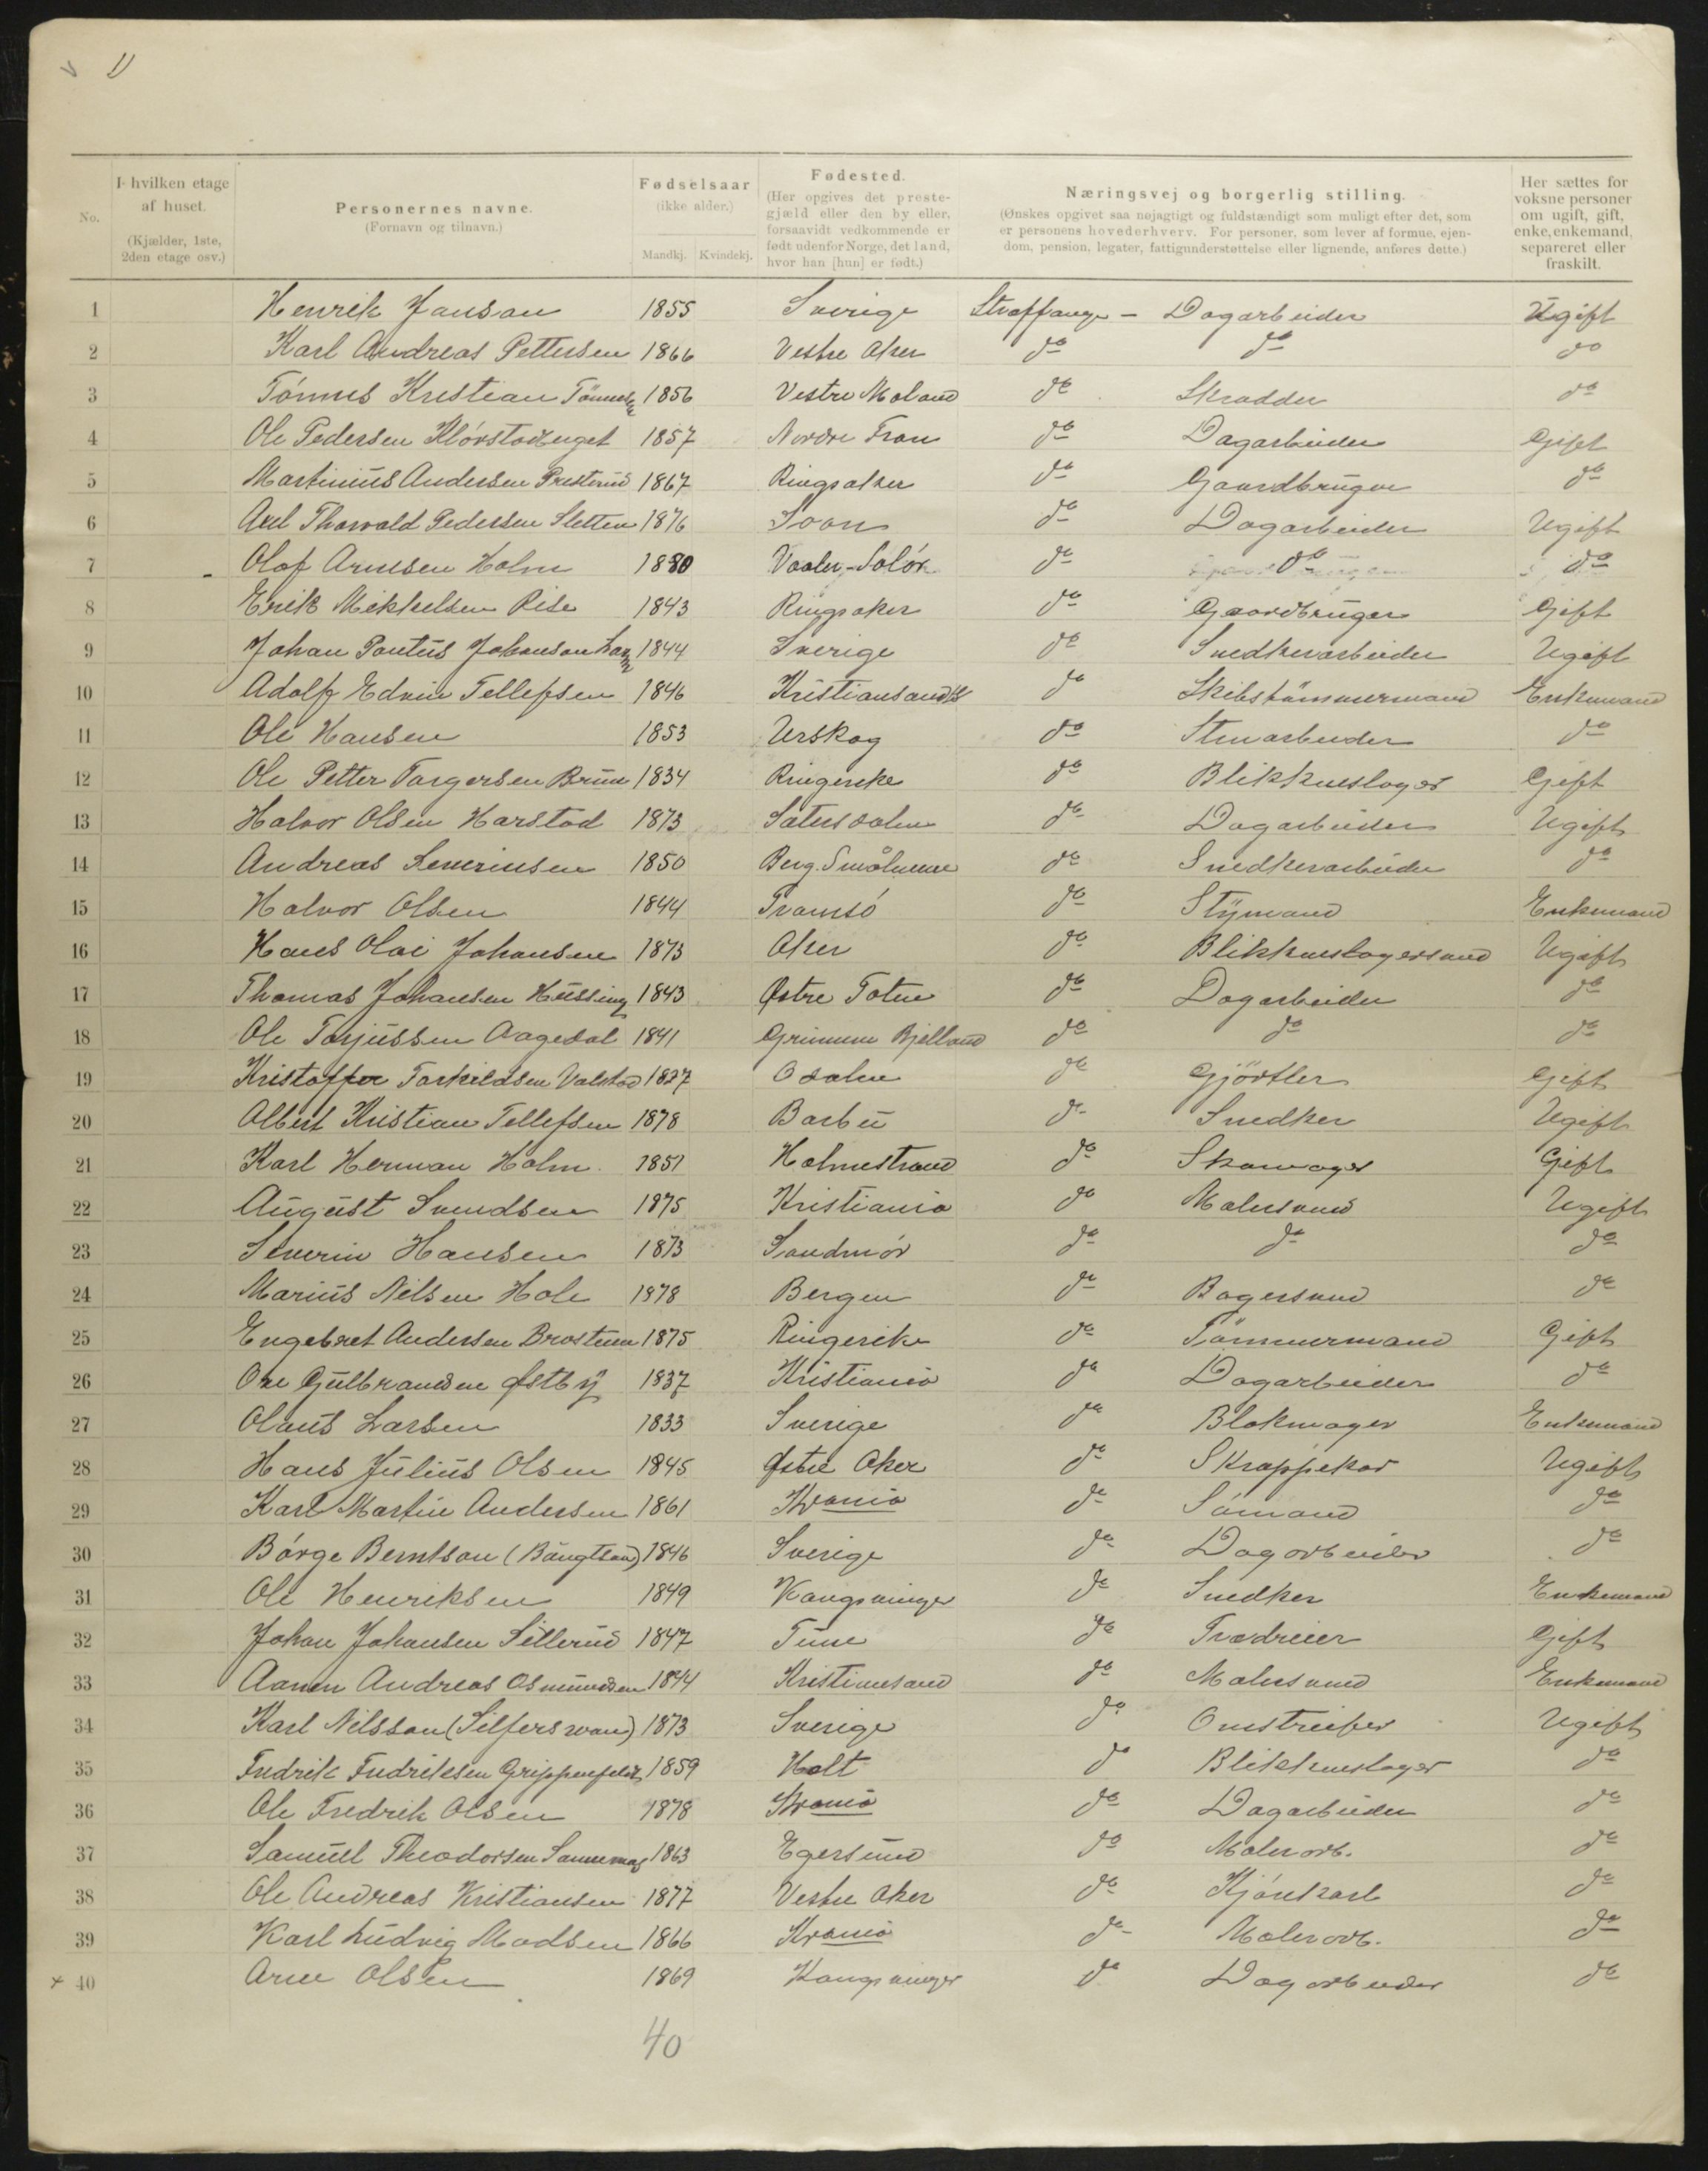 1)
No. I hvilken etage af huset. (Kjælder, 1ste, 2den etage osv.) Personernes navne. (Fornavn og tilnavn.) Fødselsaar (ikke alder.) Mandkj. Kvindekj. Fødested. (Her opgives det prestegjæld eller den by eller, forsaavidt vedkommende er født udenfor Norge, det land, hvor han [hun] er født.) Næringsvej og borgerlig stilling. (Ønskes opgivet saa nøjagtigt og fuldstændigt som muligt efter det, som er personens hovederhverv. For personer, som lever af formue, ejendom, pension, legater, fattigunderstøttelse eller lignende, anføres dette.) Her sættes for voksne personer om ugift, gift, enke, enkemand, separeret eller fraskilt.
1 Henrik Janson 1855 Sverige Straffange - Dagarbeider Ugift
2 Karl Andreas Pettersen 1866 Vestre Aker do do do
3 Tønnes Kristian 1856 Vestre Moland do Skrædder do
4 Ole Pedersen 1857 Nordre Fron do Dagarbeider Gift
5 Martinius Andersen Presterud 1867 Ringsaker do Gaardbruger do
6 Axel Thorvald Pedersen Sletten 1876 do Dagarbeider Ugift
7 Olaf Arnesen Holm 1880 Vaaler-Solør do do do
8 Erik Mikkelsen Rise 1843 Ringsaker do Gaardbruger Gift
9 Johan Pontus Johanson 1844 Sverige do Snedkerarbeider Ugift
10 Adolf Edvin Tellefsen 1846 Kristiansand do Skibstømmermand Enkemand
11 Ole Hansen 1853 Urskog do Stenarbeider do
12 Ole Petter Torgersen Brun 1834 Ringerike do Blikkenslager Gift
13 Halvor Olsen Harstad 1873 Sætersdalen do Dagarbeider Ugift
14 Andreas Severinsen 1850 Berg. Smålenene do Snedkerarbeider do
15 Halvor Olsen 1844 Tromsø do Stÿrmand Enkemand
16 Hans Olai Johansen 1873 Aker do Blikkenslagersvend Ugift
17 Thomas Johansen Hussing 1843 Østre Toten do Dagarbeider do
18 Ole Torjussen Aagedal 1841 Bjelland do do do
19 Kristoffer Torkildsen Valstad 1827 Odalen do Gjørtler Gift
20 Albert Kristian Tellefsen 1878 Barbu do Snedker Ugift
21 Karl Herman Holm 1851 Holmestrand do Skomager Gift
22 August Svendsen 1875 Kristiania do Malersvend Ugift
23 Severin Hansen 1873 Søndmør do do do
24 Marius Nilsen Hole 1878 Bergen do Bagersvend do
25 Engebret Andersen 1875 Ringerike do Tømmermand Gift
26 Gulbrandsen Østbÿ 1837 Kristiania do Dagarbeider do
27 Olaus Larsen 1833 Sverige do Blokmager Enkemand
28 Hans Julius Olsen 1845 Østre Aker do Skrappekar Ugift
29 Karl Martin Andersen 1861 Krania do Sømand do
30 Børge Berntson (Bängtson) 1846 Sverige do Dagarbeider do
31 Ole Henriksen 1849 Kongsvinger do Snedker Enkemand
32 Johan Johansen Sitterud 1847 Tune do Trædreier Gift
33 Aanen Andreas Osmundsen 1844 Kristiansand do Malersvend Enkemand
34 Karl Nilsson (Silfersvan) 1873 Sverige do Omstreifer Ugift
35 Fredrik Fredriksen 1859 Holt do Blikkenslager do
36 Ole Fredrik Olsen 1878 Krania do Dagarbeider do
37 Samuel Theodorsen 1863 Egersund do Malerarb. do
38 Ole Andreas Kristiansen 1877 Vestre Aker do Kjørekarl do
39 Karl Ludvig Madsen 1866 Krania do Malerarb. do
× 40 Arne Olsen 1869 Kongsvinger do Dagarbeider do
40